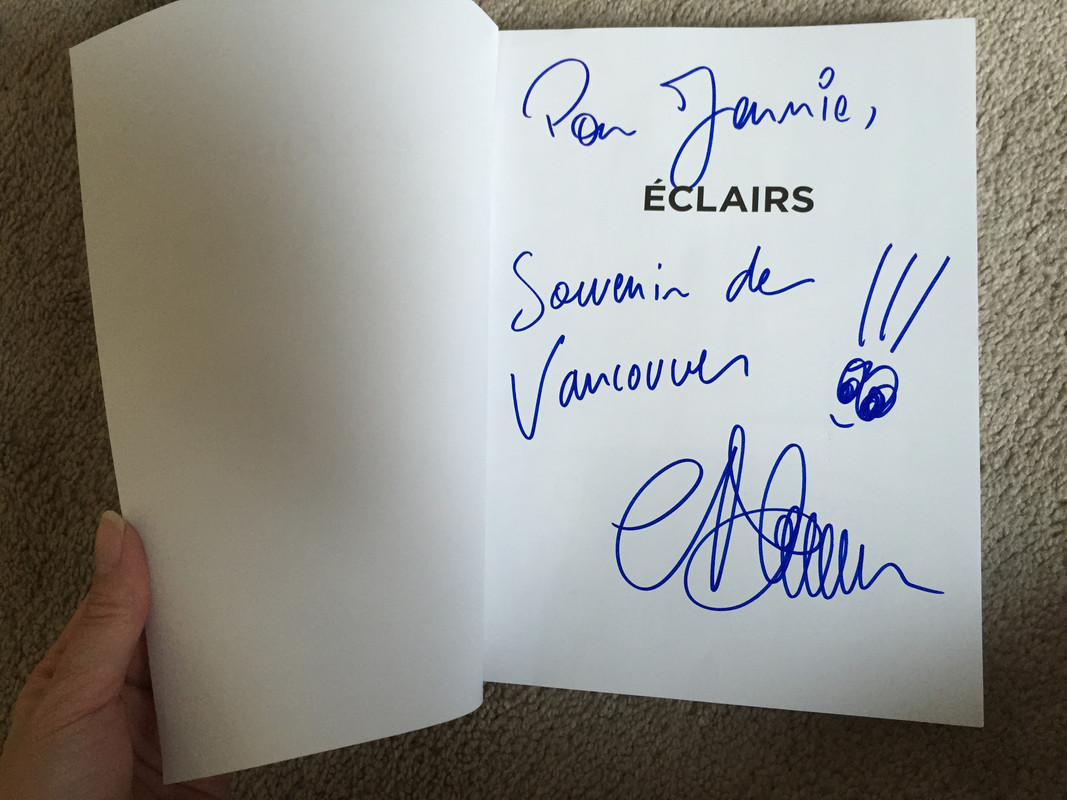 Pour Jannie,
ÉCLAIRS
Souvenir de
Vancouver !!!